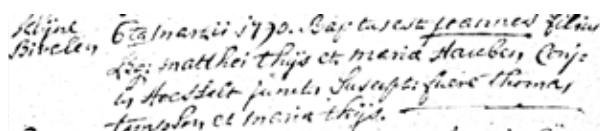 6ta martii 1790. Baptus est joannes filius
Leg: matthei thijs et maria Hauben Conj:
in Hoesselt juncti Suscepti fuere thomas
et maria thijs.